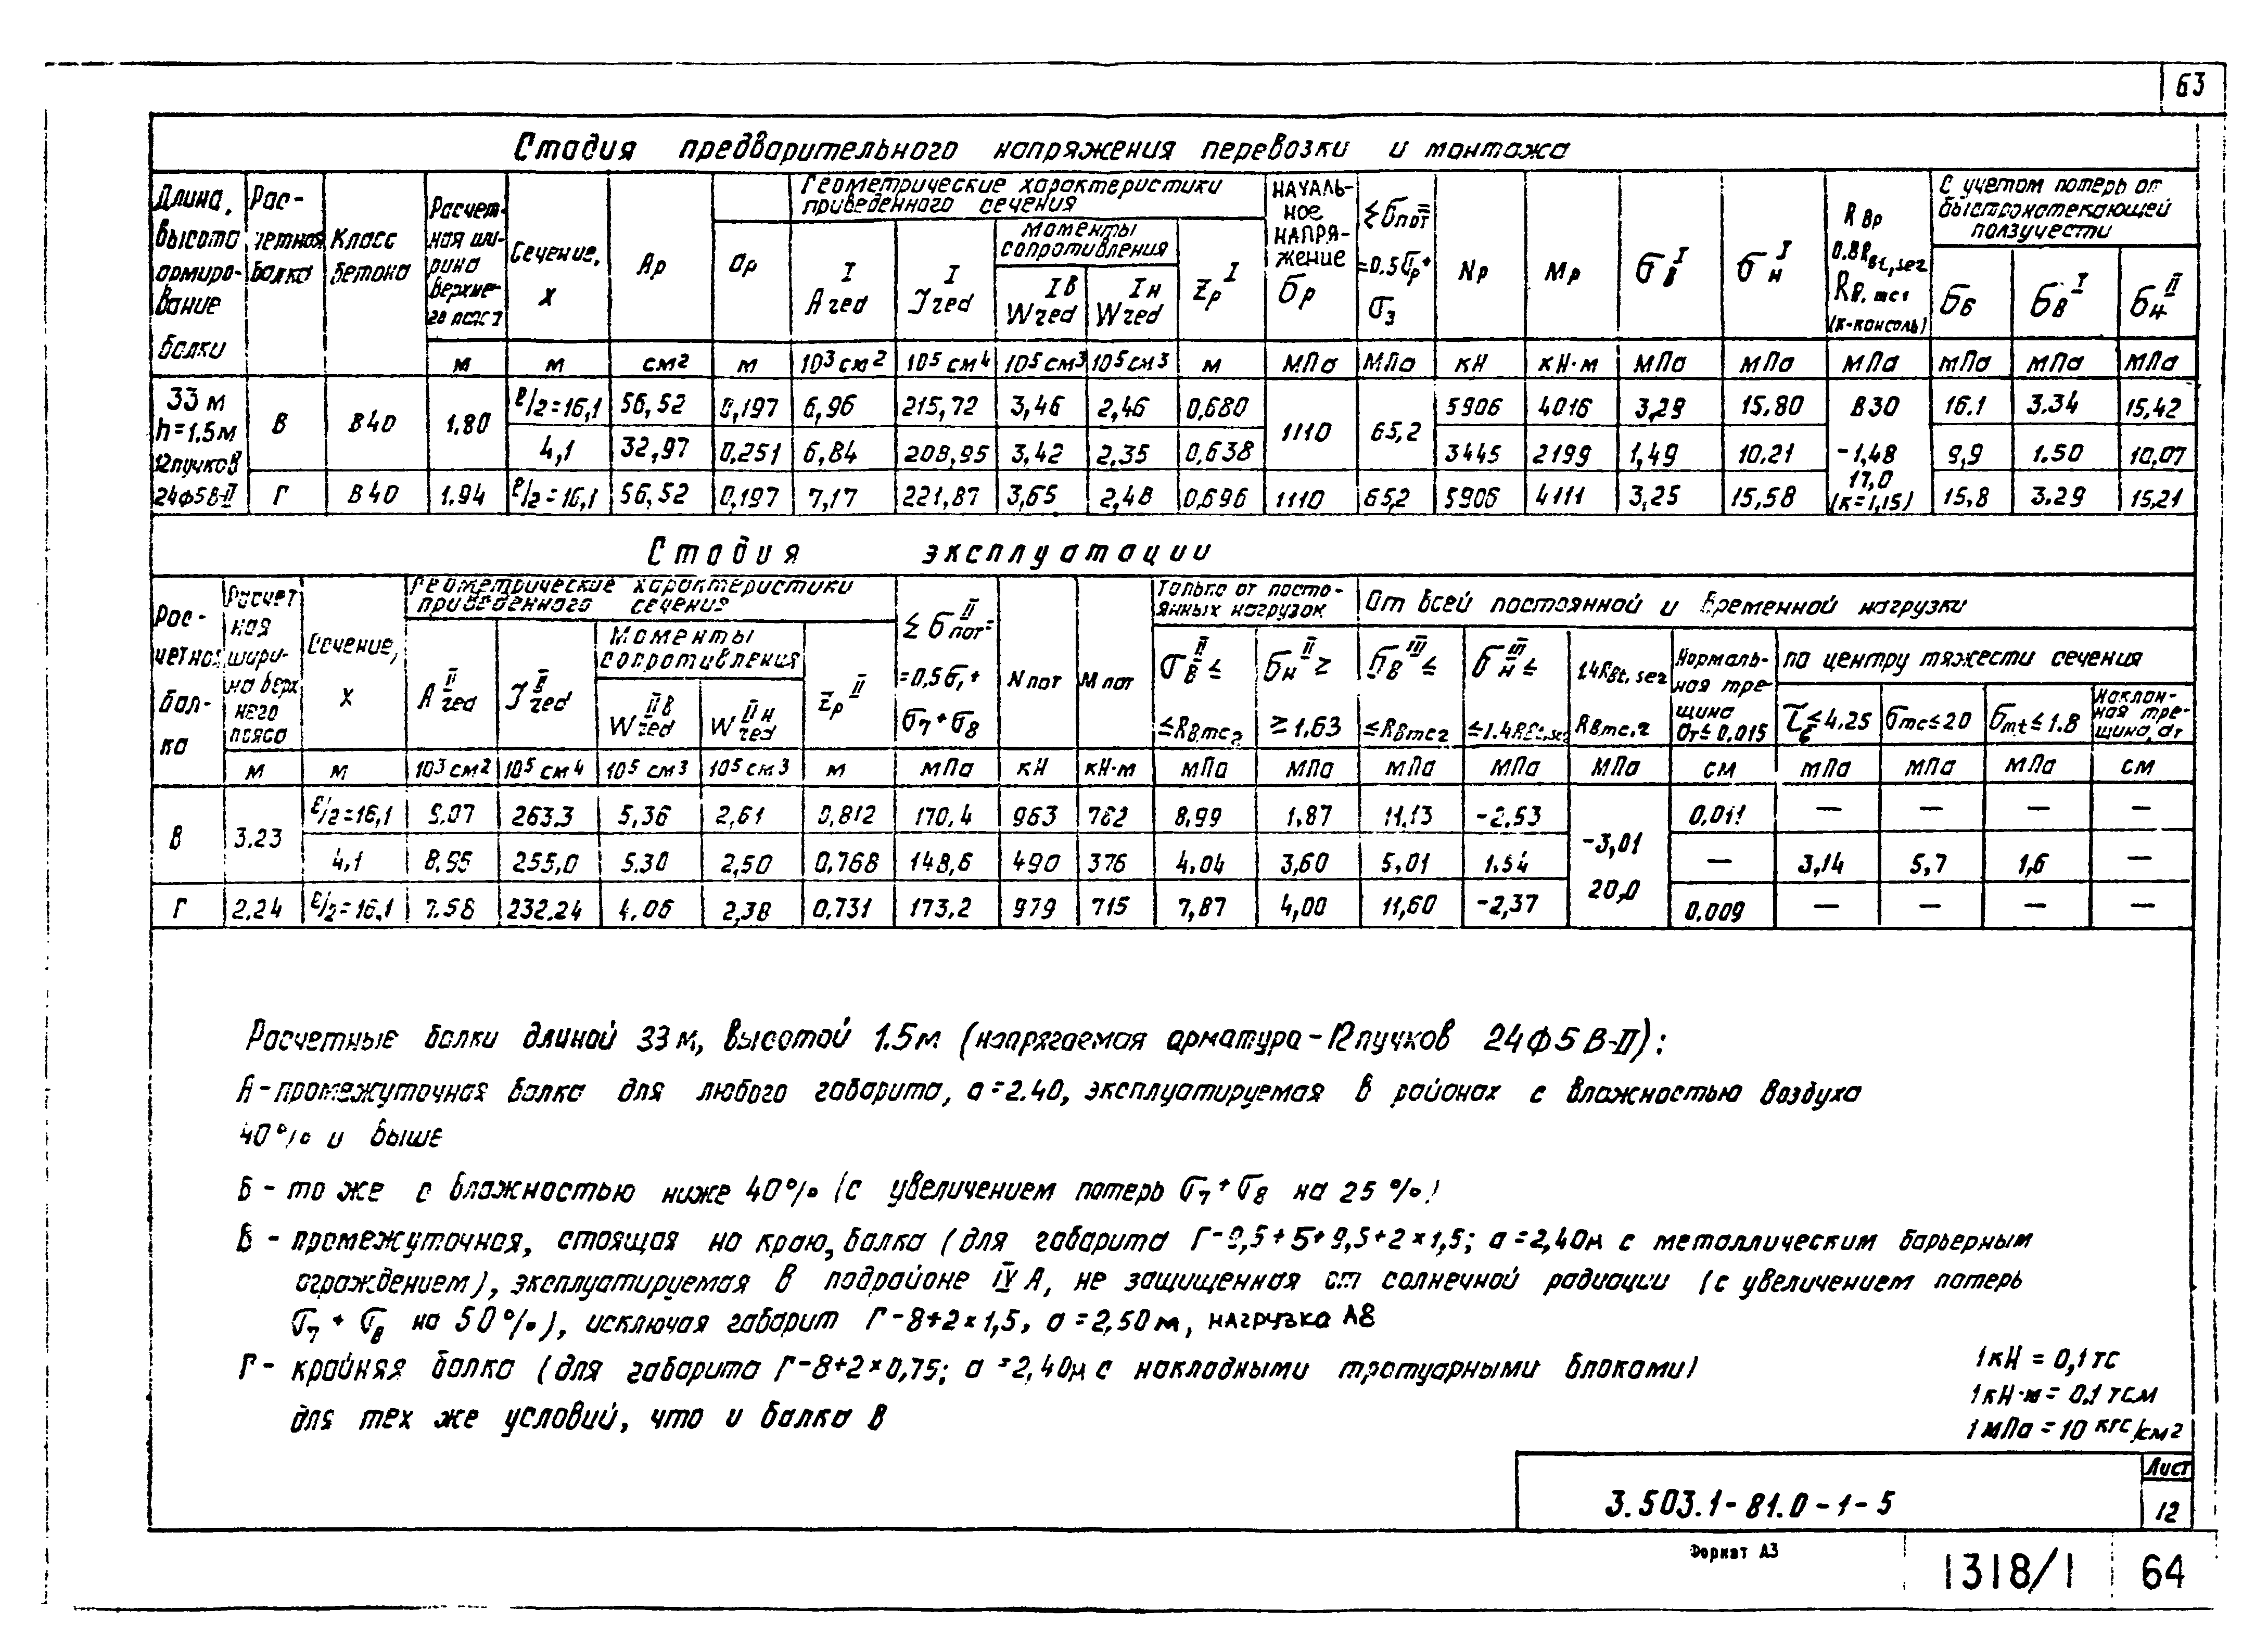 63
Стадия предварительного напряжения перевозки и монтажа
Длина, высота армирование балки | Расчетная балка | Класс бетона | Расчетная ширина верхнего пояса | Сечение, X | Aр | aр | Геометрические характеристики приведенного сечения | НАЧАЛЬНОЕ НАПРЯЖЕНИЕ σр | Σσпот = 0.5σр + σ3 | Nр | Mр | σВ I | σН I | R Вр 0.8Rвt,ser RВ.mc1 (К-консоль) | С учетом потерь от быстронатекающей ползучести
I Ared | I Jred | Моменты сопротивления | Zр I | σБ | σВ I | σН II
IВ Wred | IН Wred
м | м | см2 | м | 10³ см² | 10⁵ см⁴ | 10⁵ см³ | 10⁵ см³ | м | МПа | МПа | кН | кН·м | МПа | МПа | МПа | МПа | МПа | МПа
33 м h=1.5м 12пучков 24ф5В-II | В | В40 | 1.80 | ℓ/2=16,1 | 56,52 | 0,197 | 6,96 | 215,72 | 3,46 | 2,46 | 0,680 | 1110 | 65,2 | 5906 | 4016 | 3,29 | 15,80 | В30 | 16.1 | 3.34 | 15,42
4,1 | 32,97 | 0,251 | 6,84 | 208,95 | 3,42 | 2,35 | 0,638 | 3445 | 2199 | 1,49 | 10,21 | -1,48 | 9,9 | 1.50 | 10,07
Г | В40 | 1.94 | ℓ/2=16,1 | 56,52 | 0,197 | 7,17 | 221,87 | 3,65 | 2,48 | 0,696 | 1110 | 65,2 | 5906 | 4111 | 3,25 | 15,58 | 17,0 (к=1,15) | 15,8 | 3.29 | 15,21
Стадия эксплуатации
Расчетная балка | Расчетная ширина верхнего пояса | Сечение, X | Геометрические характеристики приведенного сечения | Σσпот II = =0,5σ1+ σ7+σ8 | N пот | M пот | Только от постоянных нагрузок | От всей постоянной и временной нагрузки
A II red | J II red | Моменты сопротивления | Zр II | σВ II ≤ ≤RВmc2 | σН II ≥ ≥1,63 | σВ III ≤ ≤RВmc2 | σН III ≤ ≤1.4RВt,ser | 1,4RВt,ser RВmc,2 | Нормальная трещина aт≤0,015 | по центру тяжести сечения
W IIВ red | W IIН red | τб≤4.25 | σmc≤20 | σmt≤1.8 | Наклонная трещина, aт
м | м | 10³ см² | 10⁵ см⁴ | 10⁵ см³ | 10⁵ см³ | м | МПа | кН | кН·м | МПа | МПа | МПа | МПа | МПа | см | МПа | МПа | МПа | см
В | 3.23 | ℓ/2=16,1 | 9,07 | 263.3 | 5,36 | 2,61 | 0,812 | 170,4 | 963 | 782 | 8,99 | 1,87 | 11,13 | -2,53 | -3,01 | 0,011 | — | — | — | —
4,1 | 8,95 | 255,0 | 5.30 | 2,50 | 0,768 | 148,6 | 490 | 376 | 4,04 | 3,60 | 5,01 | 1,54 | — | 3,14 | 5,7 | 1,6 | —
Г | 2,24 | ℓ/2=16,1 | 7.58 | 232.24 | 4.06 | 2,38 | 0,731 | 173,2 | 979 | 715 | 7,87 | 4,00 | 11,60 | -2,37 | 20,0 | 0.009 | — | — | — | —
Расчетные балки длиной 33м, высотой 1.5м (напрягаемая арматура-12пучков 24ф5В-II):
А-промежуточная балка для любого габарита, а=2.40, эксплуатируемая в районах с влажностью воздуха
40% и выше
Б - то же с влажностью ниже 40% (с увеличением потерь σ7+σ8 на 25%)
В - промежуточная, стоящая на краю, балка (для габарита Г-9,5+5+9,5+2×1,5; а=2,40м с металлическим барьерным
ограждением), эксплуатируемая в подрайоне IV А, не защищенная от солнечной радиации (с увеличением потерь
σ7 + σ8 на 50%), исключая габарит Г-8+2×1,5, а=2,50м, нагрузка А8
Г- крайняя балка (для габарита Г-8+2×0,75; а=2,40м с накладными тротуарными блоками)
для тех же условий, что и балка В
1кН = 0,1тс
1кН·м = 0.1 тсм
1мПа = 10 кгс/см2
3.503.1-81.0-1-5
Лист
12
Формат А3
1318/1
64